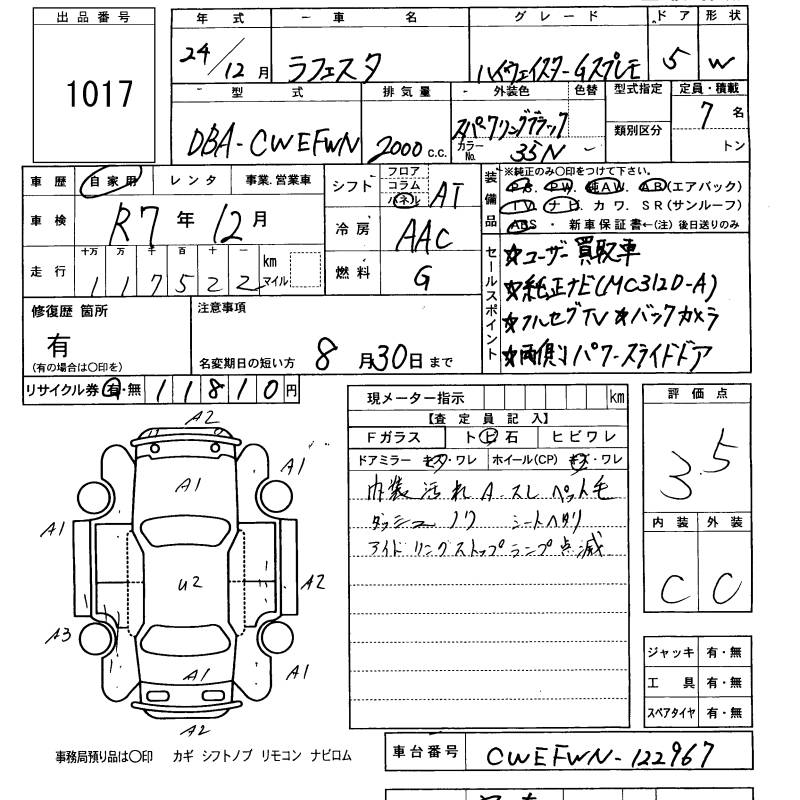 出品番号
1017
年式 車名 グレード ドア 形状
24/12月 ラフェスタ ハイウェイスターGスプレモ 5 W
型式 排気量 外装色 色替 型式指定 定員・積載
DBA-CWEFWN 2000 c.c. スパークリングブラック 類別区分 7名
カラーNo. 35N トン
車歴 自家用 レンタ 事業.営業車
車検 R7年12月
走行 十万 万 千 百 十 一
117522 km マイル
シフト フロア コラム パネル AT
冷房 AAC
燃料 G
装備品
※純正のみ○印をつけて下さい。
P.S. P.W. 純AW. A.B(エアバック)
T.V. ナビ. カワ. SR(サンルーフ)
ABS ・ 新車保証書←(注)後日送りのみ
セールスポイント
★ユーザー買取車
★純正ナビ(MC312D-A)
★フルセグTV ★バックカメラ
★両側パワースライドドア
修復歴 箇所
有
(有の場合は○印を)
注意事項
名変期日の短い方 8月30日まで
リサイクル券 有・無 11810円
現メーター指示 km
【査定員記入】
Fガラス トビ石 ヒビワレ
ドアミラー キズ・ワレ ホイール(CP) キズ・ワレ
内装汚れ A.スレ ペット毛
ダッシュノリ シートヘタリ
アイドリングストップランプ点滅
評価点
3.5
内装 外装
C C
A2
A1
A1
A1
U2
A2
A3
A1
A1
A2
ジャッキ 有・無
工具 有・無
スペアタイヤ 有・無
事務局預り品は○印 カギ シフトノブ リモコン ナビロム
車台番号 CWEFWN-122967